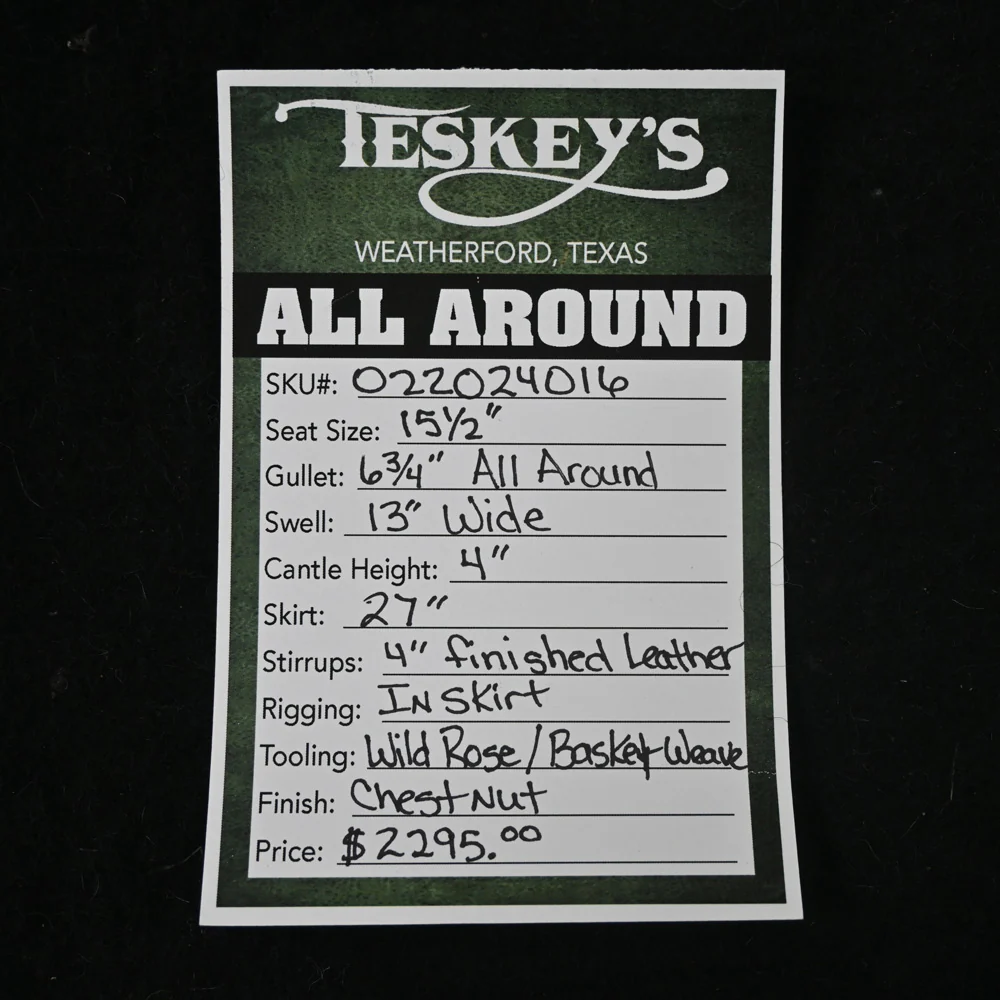 TESKEY'S
WEATHERFORD, TEXAS
ALL AROUND
SKU#: 022024016
Seat Size: 15½"
Gullet: 6¾" All Around
Swell: 13" Wide
Cantle Height: 4"
Skirt: 27"
Stirrups: 4" finished Leather
Rigging: IN Skirt
Tooling: Wild Rose / Basket Weave
Finish: Chestnut
Price: $2295.00